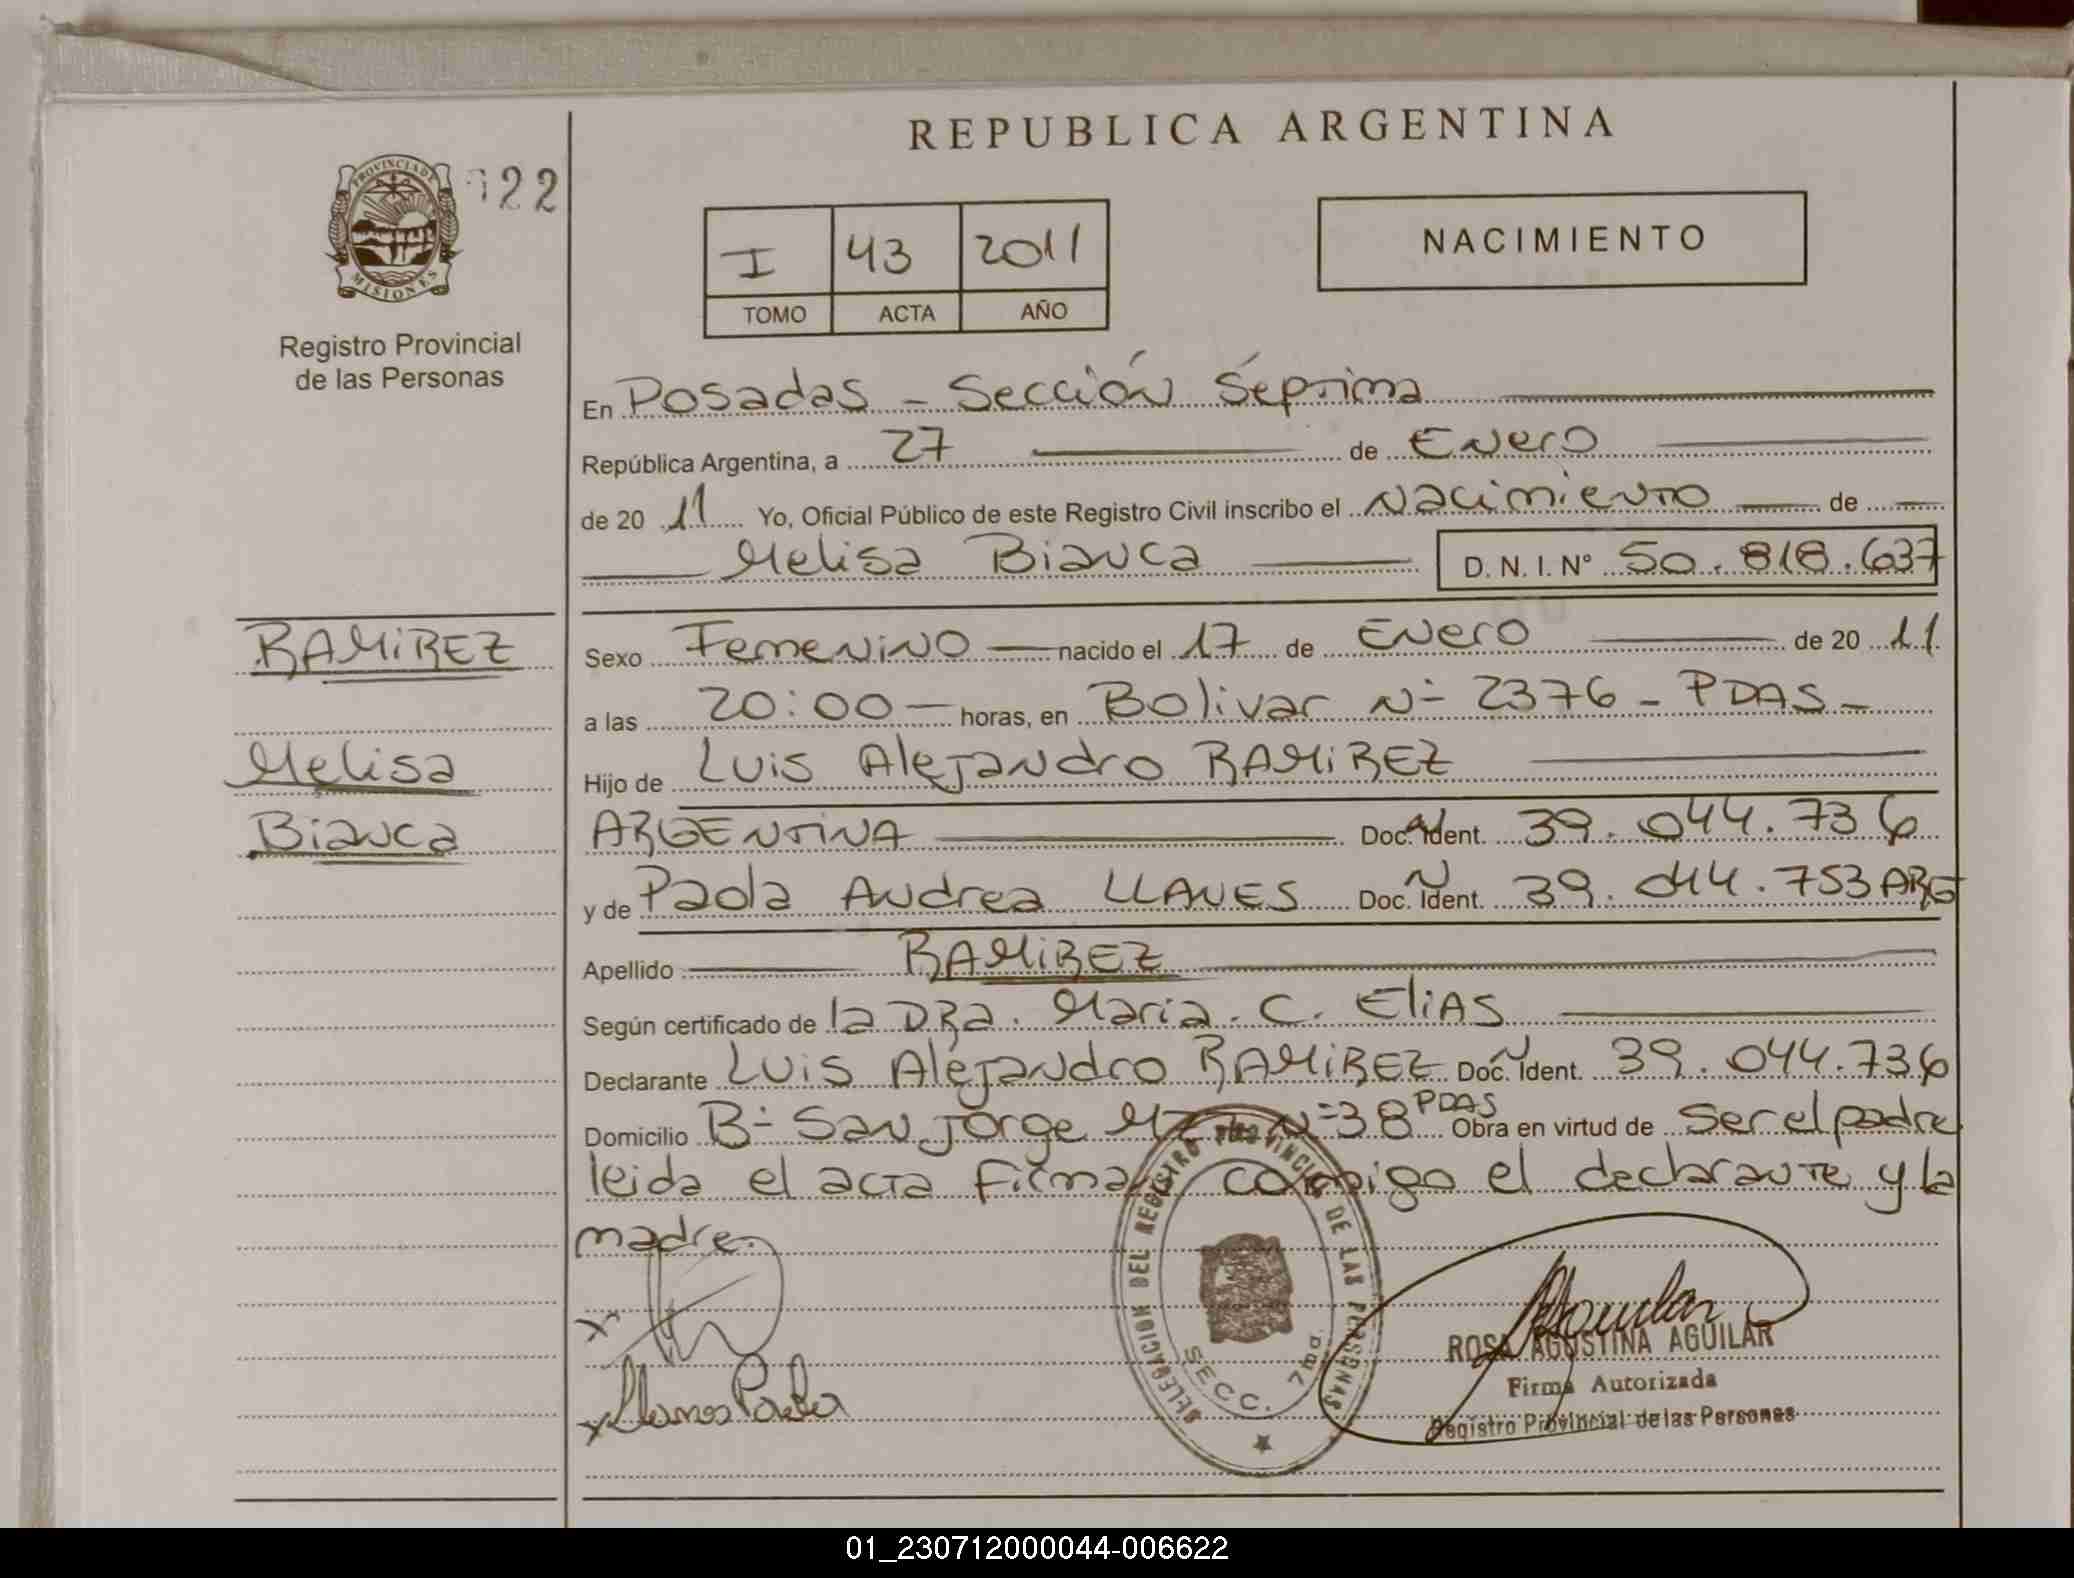 REPUBLICA ARGENTINA
PROVINCIA DE
MISIONES
022
Registro Provincial
de las Personas
I 43 2011
TOMO ACTA AÑO
NACIMIENTO
En Posadas - Sección Séptima
República Argentina, a 27 de Enero
de 20 11 Yo, Oficial Público de este Registro Civil inscribo el Nacimiento de
Melisa Bianca D. N. I. Nº 50.818.637
RAMIREZ
Sexo Femenino nacido el 17 de Enero de 20 11
a las 20:00 horas, en Bolivar Nº 2376 - PDAS -
Melisa
Hijo de Luis Alejandro RAMIREZ
Bianca
ARGENTINA Doc. Ident. 39.044.736
y de Paola Andrea LLANES Doc. Ident. 39.044.753 ARG
Apellido RAMIREZ
Según certificado de la DRa. Maria. C. Elias
Declarante Luis Alejandro RAMIREZ Doc. Ident. 39.044.736
Domicilio Bº San Jorge Mz Nº 38 PDAS Obra en virtud de ser el padre
leida el acta firman conmigo el declarante y la
madre.
x
x Llanes Paola
DELEGACION DEL REGISTRO PROVINCIAL DE LAS PERSONAS
SECC. 7ma.
ROSA AGUSTINA AGUILAR
Firma Autorizada
Registro Provincial de las Personas
01_230712000044-006622